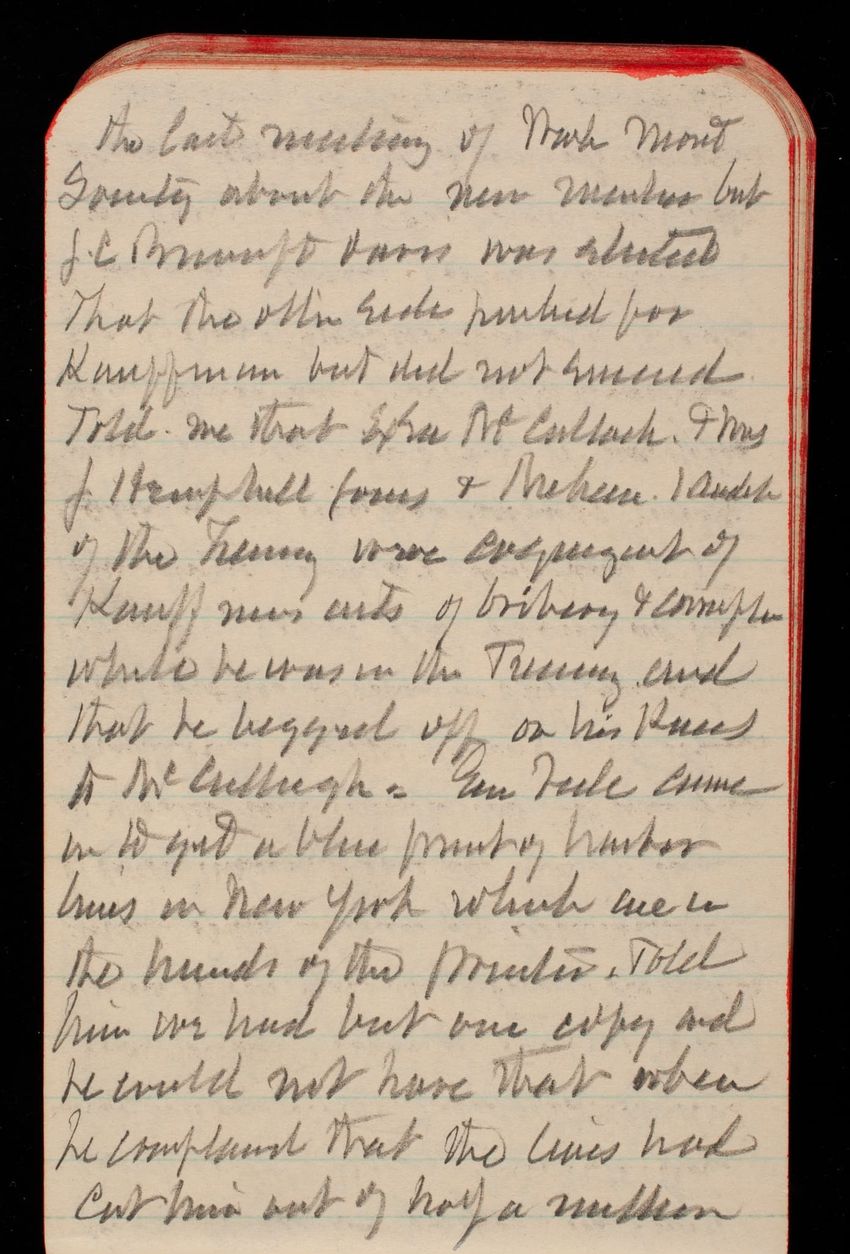 the last meeting of Wash Mont
Society about the new member but
J. C Bancroft Davis was elected
That the other side pushed for
Kauffman but did not succeed
Told me that Mc Cullock. & Wm
J Hemphill Jones & Auditor
of the Treasury were cognizant of
Kauffmans acts of bribery & corruption
while he was in the Treasury and
that he begged off on his knees
to McCullough = Gen Tele came
in to get a blue print of harbor
lines in New York which are in
the hands of the printer. Told
him we had but one copy and
he could not have that when
he complaind that the lines had
Cut him out of half a million